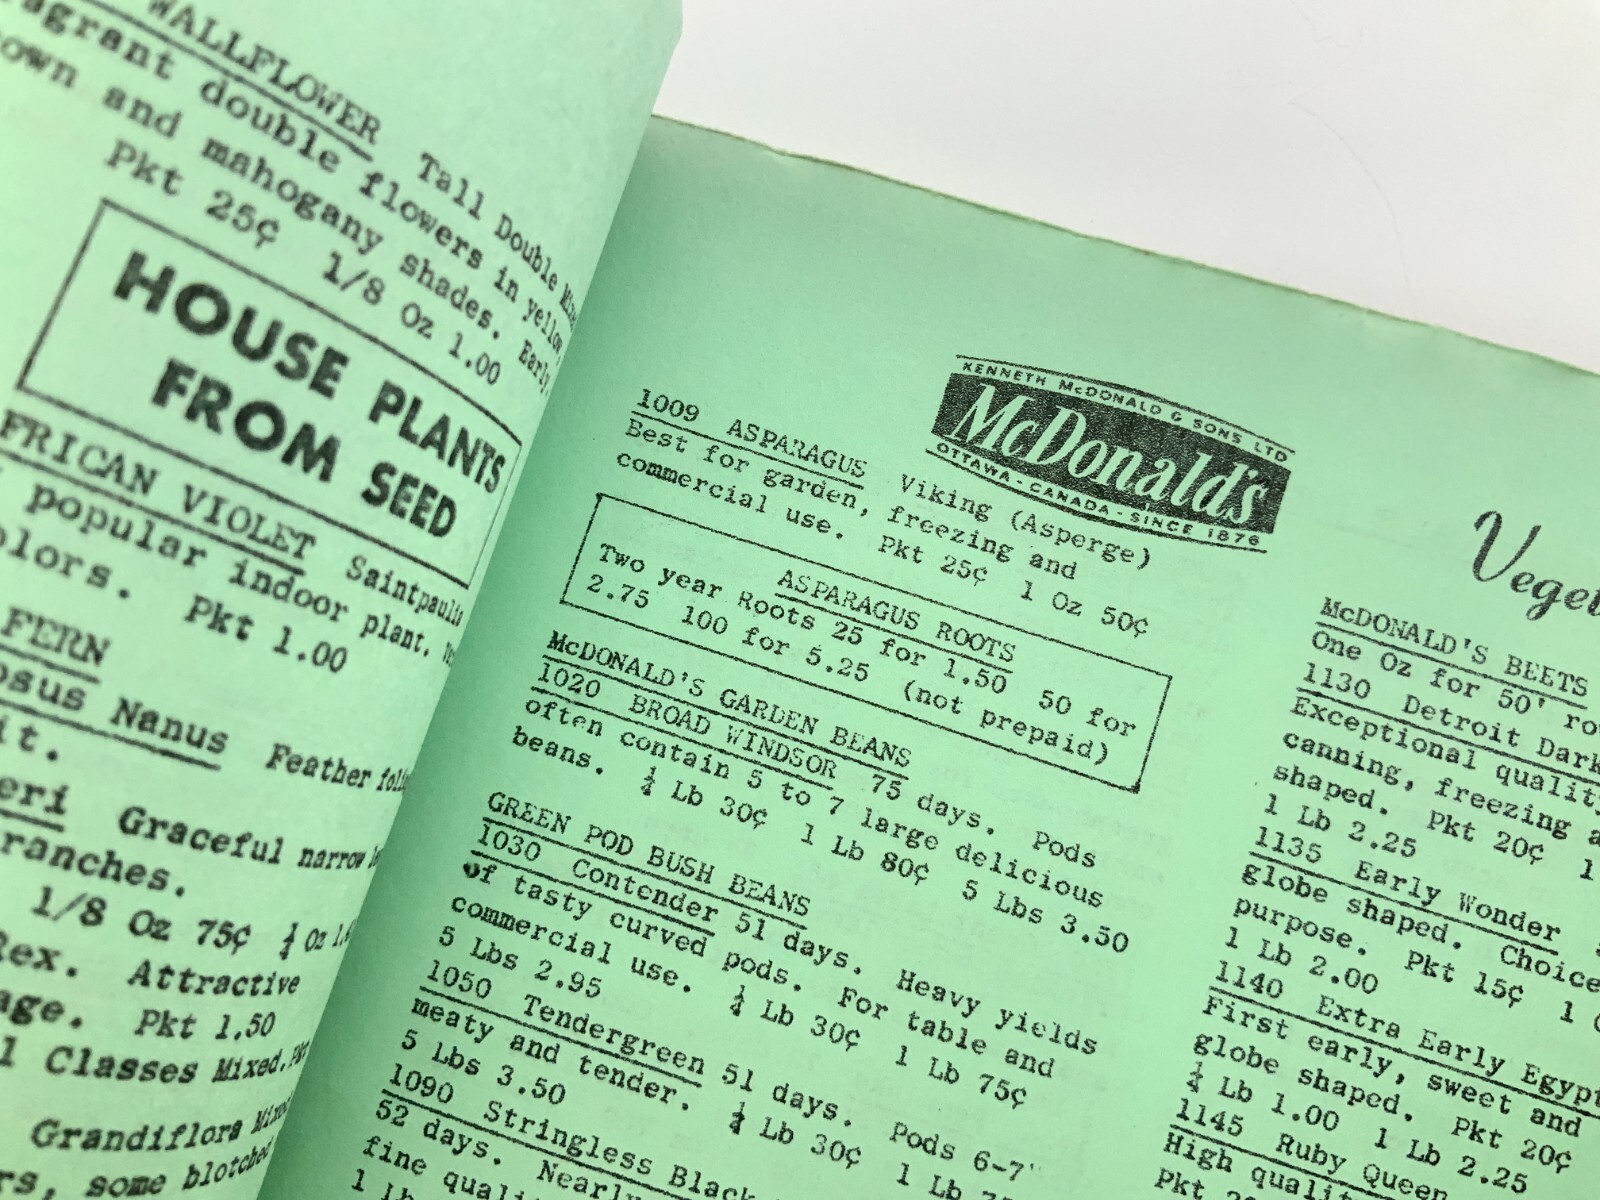 WALLFLOWER Tall Double
agrant double flowers in yellow,
own and mahogany shades. Early
Pkt 25¢ 1/8 Oz 1.00
HOUSE PLANTS
FROM SEED
FRICAN VIOLET Saintpaulia
popular indoor plant.
olors. Pkt 1.00
FERN
osus Nanus Feather
it.
eri Graceful narrow
ranches.
1/8 Oz 75¢ ¼ Oz
Rex. Attractive
age. Pkt 1.50
l Classes Mixed.
Grandiflora Mixed
rs, some blotched
KENNETH McDONALD & SONS LTD
McDonald's
OTTAWA-CANADA-SINCE 1876
1009 ASPARAGUS Viking (Asperge)
Best for garden, freezing and
commercial use. Pkt 25¢ 1 Oz 50¢
ASPARAGUS ROOTS
Two year Roots 25 for 1.50 50 for
2.75 100 for 5.25 (not prepaid)
McDONALD'S GARDEN BEANS
1020 BROAD WINDSOR 75 days. Pods
often contain 5 to 7 large delicious
beans. ¼ Lb 30¢ 1 Lb 80¢ 5 Lbs 3.50
GREEN POD BUSH BEANS
1030 Contender 51 days. Heavy yields
of tasty curved pods. For table and
commercial use. ¼ Lb 30¢ 1 Lb 75¢
5 Lbs 2.95
1050 Tendergreen 51 days. Pods 6-7"
meaty and tender. ¼ Lb 30¢ 1 Lb
5 Lbs 3.50
1090 Stringless Black
52 days. Nearly
fine quali
1 Lb
Veget
McDONALD'S BEETS
One Oz for 50' ro
1130 Detroit Dark
Exceptional quality
canning, freezing a
shaped. Pkt 20¢ 1
1 Lb 2.25
1135 Early Wonder
globe shaped. Choice
purpose. Pkt 15¢ 1
1 Lb 2.00
1140 Extra Early Egypt
First early, sweet and
globe shaped. Pkt 20¢
¼ Lb 1.00 1 Lb 2.25
1145 Ruby Queen
High quality
Pkt